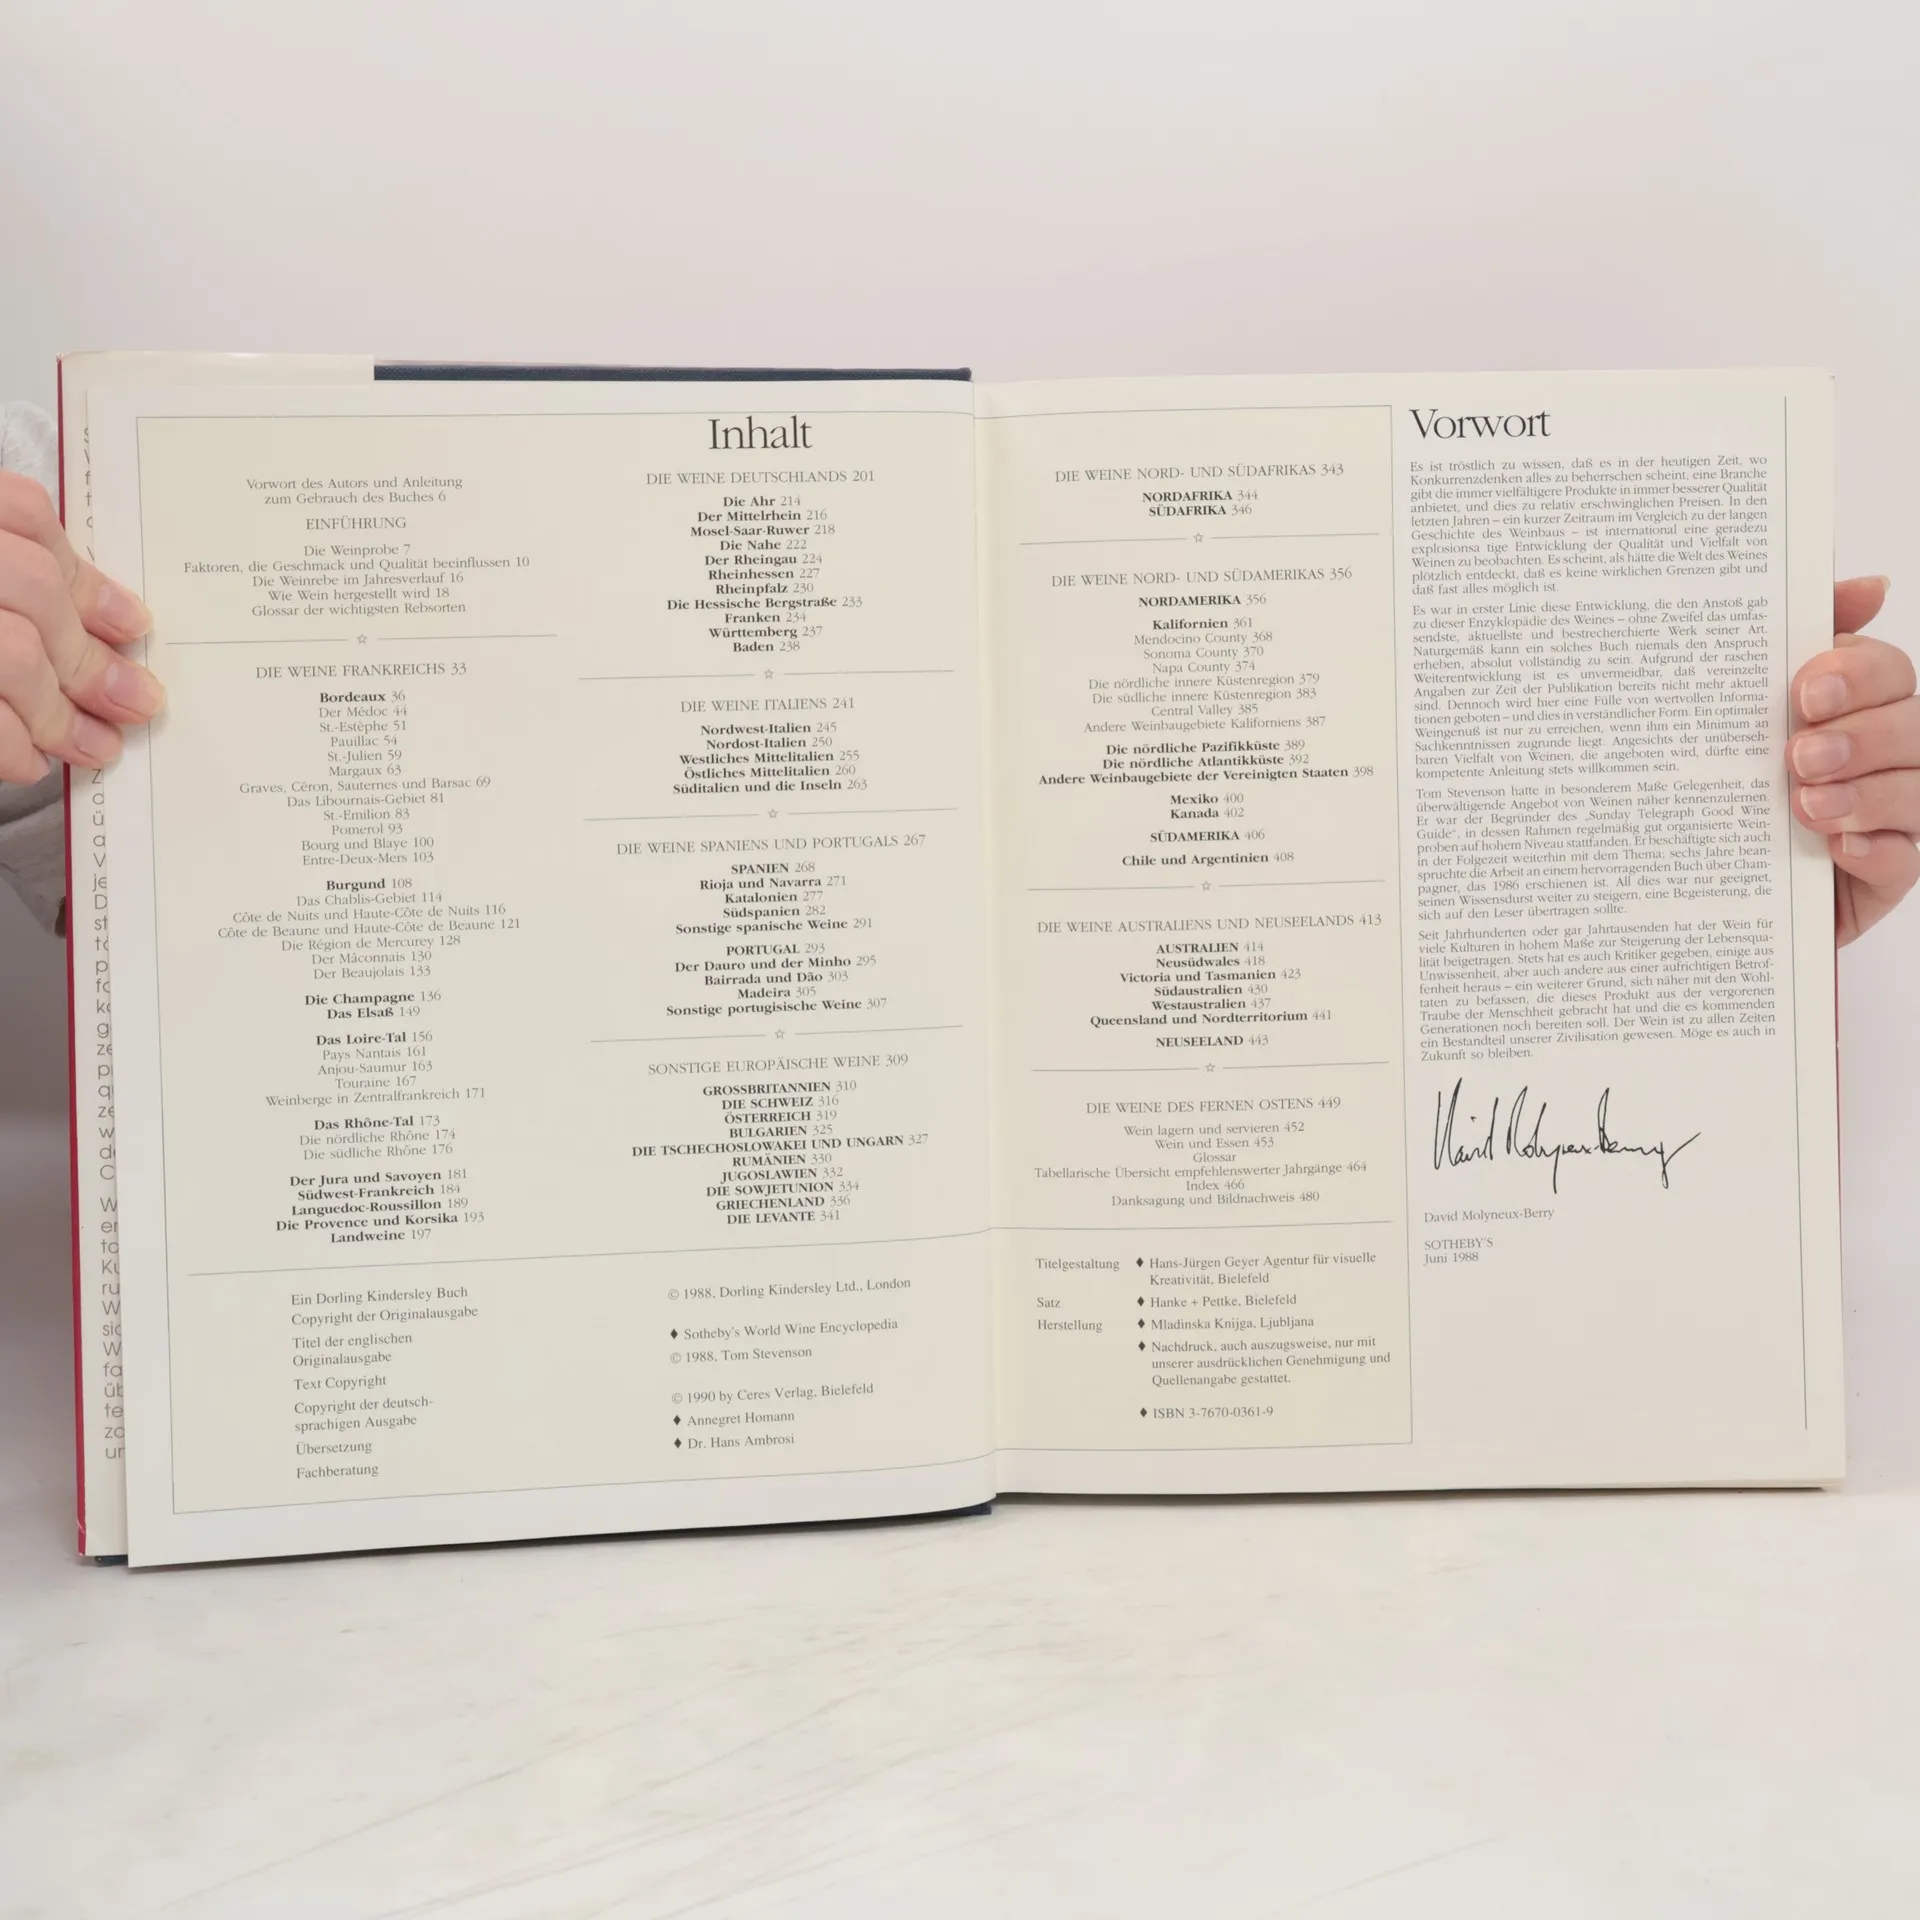 Inhalt
Vorwort des Autors und Anleitung
zum Gebrauch des Buches 6
EINFÜHRUNG
Die Weinprobe 7
Faktoren, die Geschmack und Qualität beeinflussen 10
Die Weinrebe im Jahresverlauf 16
Wie Wein hergestellt wird 18
Glossar der wichtigsten Rebsorten
DIE WEINE FRANKREICHS 33
Bordeaux 36
Der Médoc 44
St.-Estèphe 51
Pauillac 54
St.-Julien 59
Margaux 63
Graves, Céron, Sauternes und Barsac 69
Das Libournais-Gebiet 81
St.-Emilion 83
Pomerol 93
Bourg und Blaye 100
Entre-Deux-Mers 103
Burgund 108
Das Chablis-Gebiet 114
Côte de Nuits und Haute-Côte de Nuits 116
Côte de Beaune und Haute-Côte de Beaune 121
Die Région de Mercurey 128
Der Mâconnais 130
Der Beaujolais 133
Die Champagne 136
Das Elsaß 149
Das Loire-Tal 156
Pays Nantais 161
Anjou-Saumur 163
Touraine 167
Weinberge in Zentralfrankreich 171
Das Rhône-Tal 173
Die nördliche Rhône 174
Die südliche Rhône 176
Der Jura und Savoyen 181
Südwest-Frankreich 184
Languedoc-Roussillon 189
Die Provence und Korsika 193
Landweine 197
DIE WEINE DEUTSCHLANDS 201
Die Ahr 214
Der Mittelrhein 216
Mosel-Saar-Ruwer 218
Die Nahe 222
Der Rheingau 224
Rheinhessen 227
Rheinpfalz 230
Die Hessische Bergstraße 233
Franken 234
Württemberg 237
Baden 238
DIE WEINE ITALIENS 241
Nordwest-Italien 245
Nordost-Italien 250
Westliches Mittelitalien 255
Östliches Mittelitalien 260
Süditalien und die Inseln 263
DIE WEINE SPANIENS UND PORTUGALS 267
SPANIEN 268
Rioja und Navarra 271
Katalonien 277
Südspanien 282
Sonstige spanische Weine 291
PORTUGAL 293
Der Dauro und der Minho 295
Bairrada und Dão 303
Madeira 305
Sonstige portugisische Weine 307
SONSTIGE EUROPÄISCHE WEINE 309
GROSSBRITANNIEN 310
DIE SCHWEIZ 316
ÖSTERREICH 319
BULGARIEN 325
DIE TSCHECHOSLOWAKEI UND UNGARN 327
RUMÄNIEN 330
JUGOSLAWIEN 332
DIE SOWJETUNION 334
GRIECHENLAND 336
DIE LEVANTE 341
Ein Dorling Kindersley Buch
Copyright der Originalausgabe
Titel der englischen
Originalausgabe
Text Copyright
Copyright der deutsch-
sprachigen Ausgabe
Übersetzung
Fachberatung
© 1988, Dorling Kindersley Ltd., London
♦ Sotheby's World Wine Encyclopedia
© 1988, Tom Stevenson
© 1990 by Ceres Verlag, Bielefeld
♦ Annegret Homann
♦ Dr. Hans Ambrosi
DIE WEINE NORD- UND SÜDAFRIKAS 343
NORDAFRIKA 344
SÜDAFRIKA 346
DIE WEINE NORD- UND SÜDAMERIKAS 356
NORDAMERIKA 356
Kalifornien 361
Mendocino County 368
Sonoma County 370
Napa County 374
Die nördliche innere Küstenregion 379
Die südliche innere Küstenregion 383
Central Valley 385
Andere Weinbaugebiete Kaliforniens 387
Die nördliche Pazifikküste 389
Die nördliche Atlantikküste 392
Andere Weinbaugebiete der Vereinigten Staaten 398
Mexiko 400
Kanada 402
SÜDAMERIKA 406
Chile und Argentinien 408
DIE WEINE AUSTRALIENS UND NEUSEELANDS 413
AUSTRALIEN 414
Neusüdwales 418
Victoria und Tasmanien 423
Südaustralien 430
Westaustralien 437
Queensland und Nordterritorium 441
NEUSEELAND 443
DIE WEINE DES FERNEN OSTENS 449
Wein lagern und servieren 452
Wein und Essen 453
Glossar
Tabellarische Übersicht empfehlenswerter Jahrgänge 464
Index 466
Danksagung und Bildnachweis 480
Titelgestaltung ♦ Hans-Jürgen Geyer Agentur für visuelle
Kreativität, Bielefeld
Satz ♦ Hanke + Pettke, Bielefeld
Herstellung ♦ Mladinska Knijga, Ljubljana
♦ Nachdruck, auch auszugsweise, nur mit
unserer ausdrücklichen Genehmigung und
Quellenangabe gestattet.
♦ ISBN 3-7670-0361-9
Vorwort
Es ist tröstlich zu wissen, daß es in der heutigen Zeit, wo
Konkurrenzdenken alles zu beherrschen scheint, eine Branche
gibt die immer vielfältigere Produkte in immer besserer Qualität
anbietet, und dies zu relativ erschwinglichen Preisen. In den
letzten Jahren – ein kurzer Zeitraum im Vergleich zu der langen
Geschichte des Weinbaus – ist international eine geradezu
explosionsa tige Entwicklung der Qualität und Vielfalt von
Weinen zu beobachten. Es scheint, als hätte die Welt des Weines
plötzlich entdeckt, daß es keine wirklichen Grenzen gibt und
daß fast alles möglich ist.
Es war in erster Linie diese Entwicklung, die den Anstoß gab
zu dieser Enzyklopädie des Weines – ohne Zweifel das umfas-
sendste, aktuellste und bestrecherchierte Werk seiner Art.
Naturgemäß kann ein solches Buch niemals den Anspruch
erheben, absolut vollständig zu sein. Aufgrund der raschen
Weiterentwicklung ist es unvermeidbar, daß vereinzelte
Angaben zur Zeit der Publikation bereits nicht mehr aktuell
sind. Dennoch wird hier eine Fülle von wertvollen Informa-
tionen geboten – und dies in verständlicher Form. Ein optimaler
Weingenuß ist nur zu erreichen, wenn ihm ein Minimum an
Sachkenntnissen zugrunde liegt. Angesichts der unüberseh-
baren Vielfalt von Weinen, die angeboten wird, dürfte eine
kompetente Anleitung stets willkommen sein.
Tom Stevenson hatte in besonderem Maße Gelegenheit, das
überwältigende Angebot von Weinen näher kennenzulernen.
Er war der Begründer des „Sunday Telegraph Good Wine
Guide“, in dessen Rahmen regelmäßig gut organisierte Wein-
proben auf hohem Niveau stattfanden. Er beschäftigte sich auch
in der Folgezeit weiterhin mit dem Thema; sechs Jahre bean-
spruchte die Arbeit an einem hervorragenden Buch über Cham-
pagner, das 1986 erschienen ist. All dies war nur geeignet,
seinen Wissensdurst weiter zu steigern, eine Begeisterung, die
sich auf den Leser übertragen sollte.
Seit Jahrhunderten oder gar Jahrtausenden hat der Wein für
viele Kulturen in hohem Maße zur Steigerung der Lebensqua-
lität beigetragen. Stets hat es auch Kritiker gegeben, einige aus
Unwissenheit, aber auch andere aus einer aufrichtigen Betrof-
fenheit heraus – ein weiterer Grund, sich näher mit den Wohl-
taten zu befassen, die dieses Produkt aus der vergorenen
Traube der Menschheit gebracht hat und die es kommenden
Generationen noch bereiten soll. Der Wein ist zu allen Zeiten
ein Bestandteil unserer Zivilisation gewesen. Möge es auch in
Zukunft so bleiben.
David Molyneux-Berry
David Molyneux-Berry
SOTHEBY'S
Juni 1988